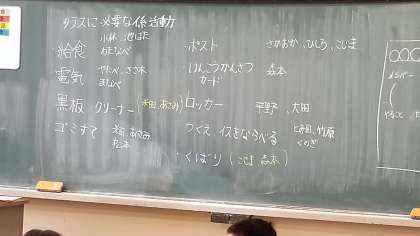 クラスに必要な係活動
・給食 小林、池はた
わたなべ
・電気 やたべ、ささ木
まなべ
・黒板・クリーナー(本田、あさみ)
・ゴミすて あさみ
・ポスト さかおか、ひしろ、こじま
・けんこうかんさつ 森本
カード
・ロッカー 平野、大田
・つくえ、イスをならべる とみ田、竹原
くのぎ
・くばり(こじま 森本)
○○○
メンバー